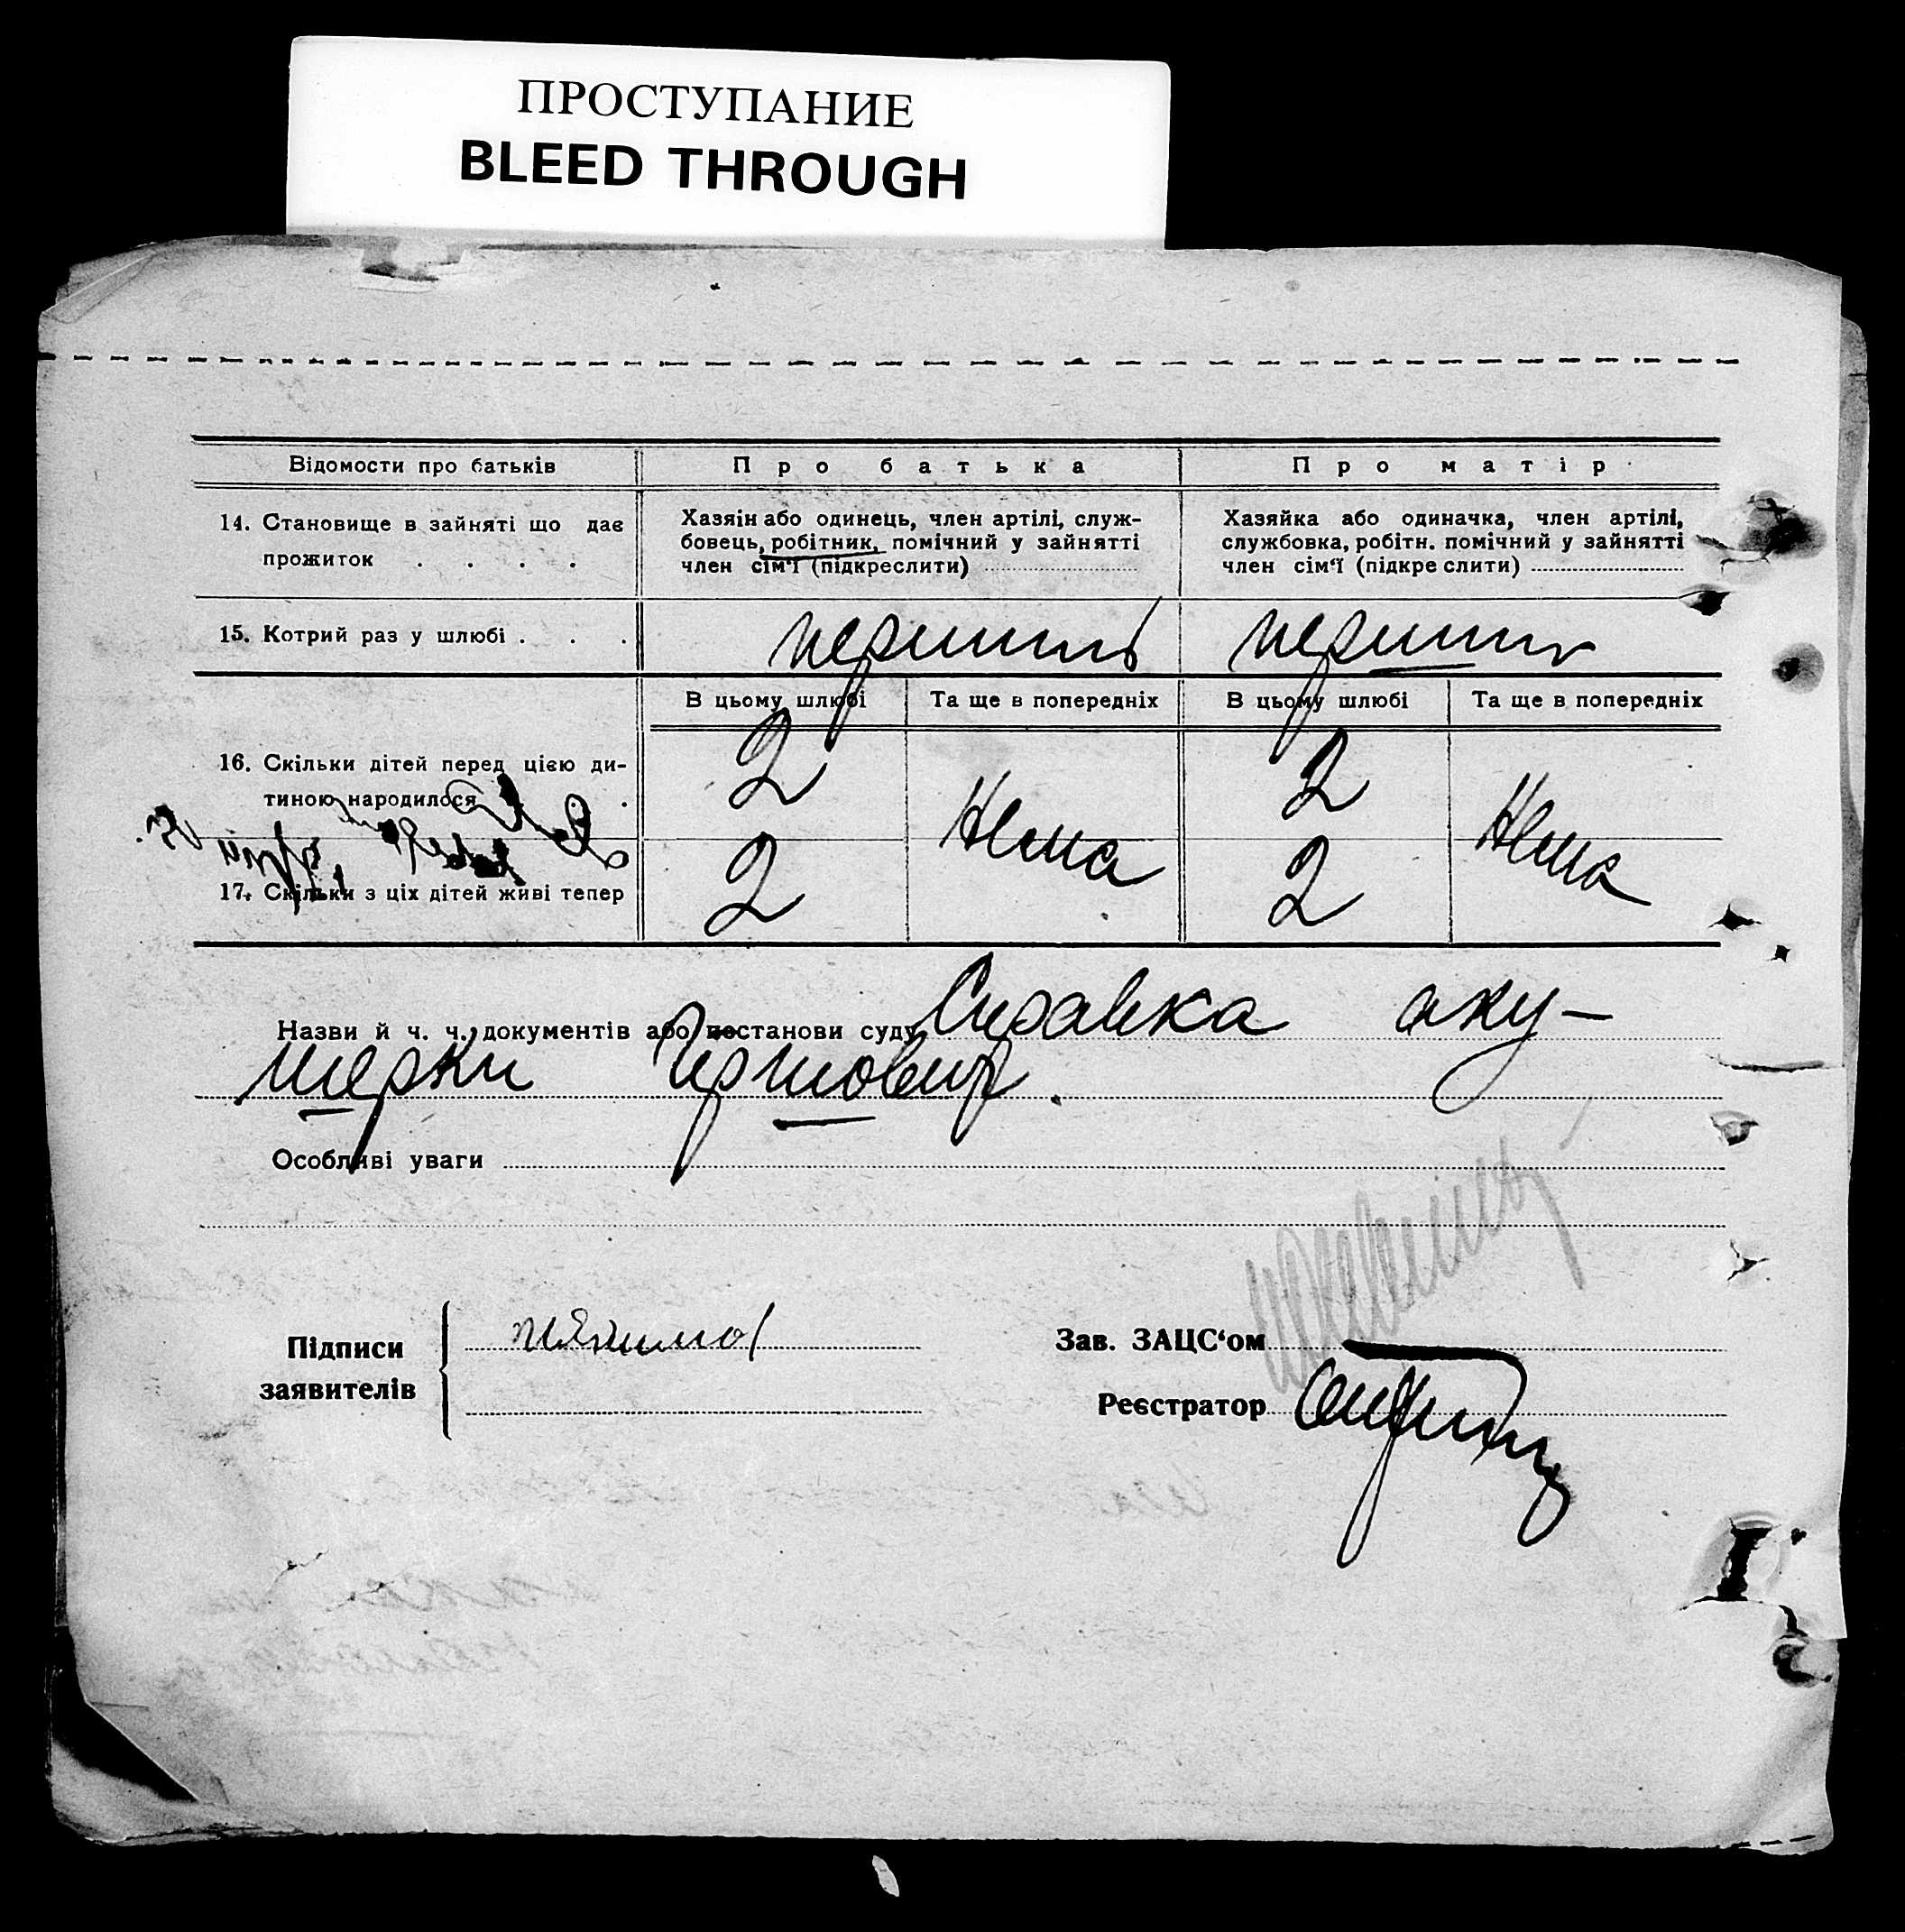 ПРОСТУПАНИЕ
BLEED THROUGH
Відомости про батьків Про батька Про матір
14. Становище в зайняті що дає прожиток . . . .
Хазяін або одинець, член артілі, служ-
бовець, робітник, помічний у зайнятті
член сім'ї (підкреслити)
Хазяйка або одиначка, член артілі,
службовка, робітн. помічний у зайнятті
член сім'ї (підкреслити)
15. Котрий раз у шлюбі . . . перший перший
В цьому шлюбі Та ще в попередніх В цьому шлюбі Та ще в попередніх
16. Скільки дітей перед цією ди-
тиною народилося . . 2 Нема 2 Нема
17. Скільки з ціх дітей живі тепер 2 2
Назви й ч. ч. документів або постанови суду Справка аку-
шерки
Особливі уваги
Підписи
заявителів
Зав. ЗАЦС'ом
Реєстратор